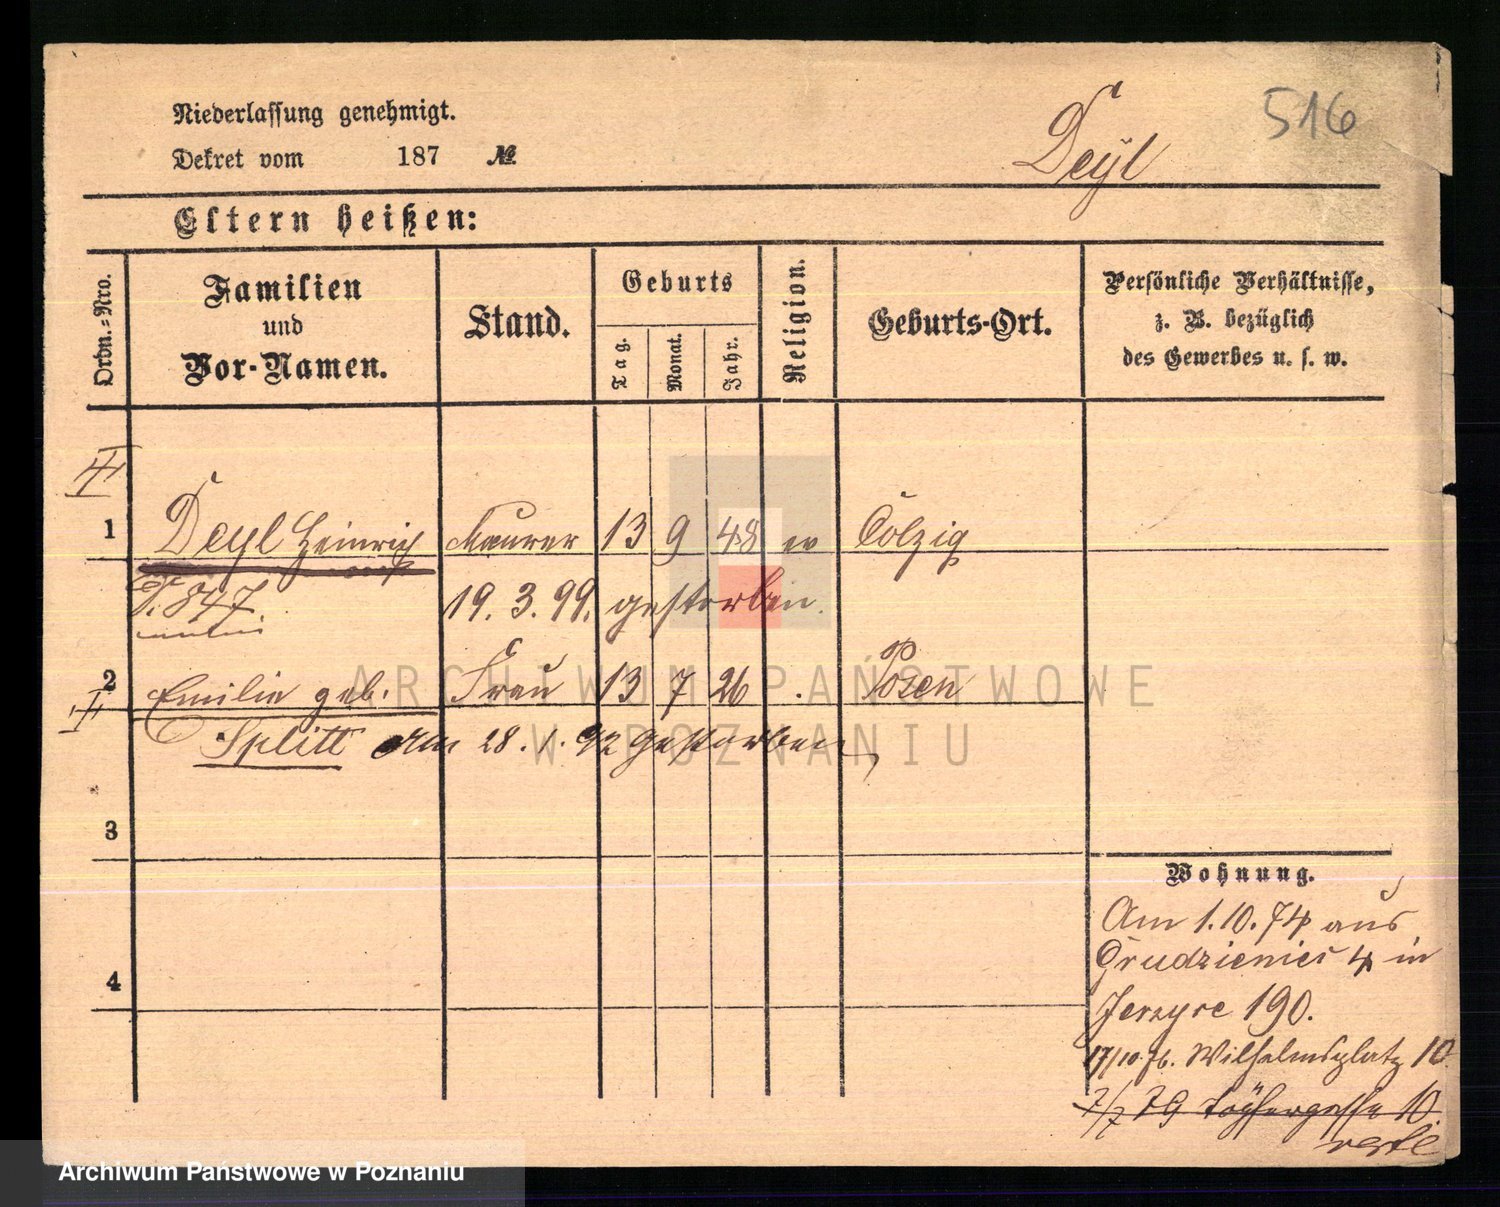 516
Deyl
Niederlassung genehmigt.
Dekret vom 187 №
Eltern heißen:
Ordn.=Nro.
Familien
und
Vor-Namen.
Stand.
Geburts
Tag.
Monat.
Jahr.
Religion.
Geburts-Ort.
Persönliche Verhältnisse,
z. B. bezüglich
des Gewerbes u. s. w.
1 Deyl Heinrich Maurer 13 9 48 ev Colzig
T. 847. 19. 3. 99. gestorben.
2 Emilie geb. Frau 13 7 26 . Posen
Splitt Am 28. 1. 92 gestorben
3
4
Wohnung.
Am 1.10.74 aus
Grudzieniec 4 in
Jerzyce 190.
17/10.76. Wilhelmsplatz 10
7/7 79 10.
verte
ARCHIWUM PAŃSTWOWE
W POZNANIU
Archiwum Państwowe w Poznaniu